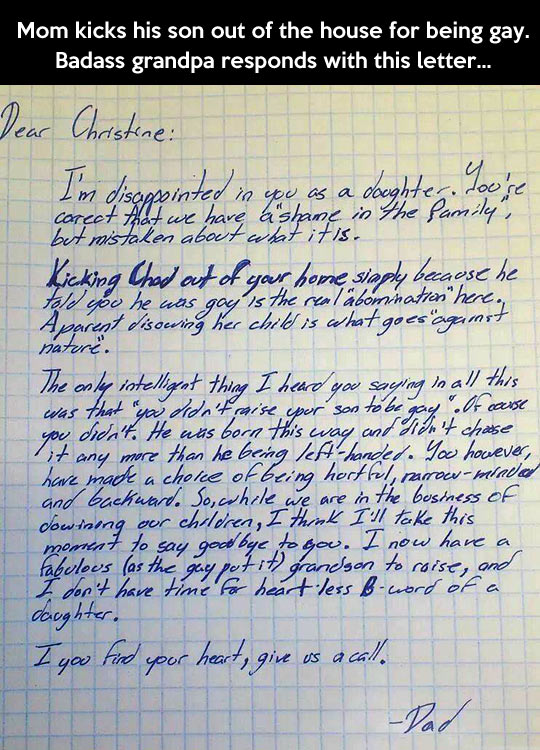 Mom kicks his son out of the house for being gay.
Badass grandpa responds with this letter...
Dear Christine:
I'm disappointed in you as a daughter. You're
corect that we have a "shame in the family",
but mistaken about what it is.
Kicking Chad out of your home simply because he
told you he was gay is the real "abomination" here.
A parent disowing her child is what goes "against
nature".
The only intelligent thing I heard you saying in all this
was that "you didn't raise your son to be gay". Of couse
you didn't. He was born this way and didn't choose
it any more than he being left-handed. You however,
have made a choice of being hurtful, narrow-minded
and backward. So, while we are in the business of
dowining our children, I think I'll take this
moment to say goodbye to you. I now have a
fabulous (as the gay put it) grandson to raise, and
I don't have time for heart less B-word of a
daughter.
I you find your heart, give us a call.
-Dad